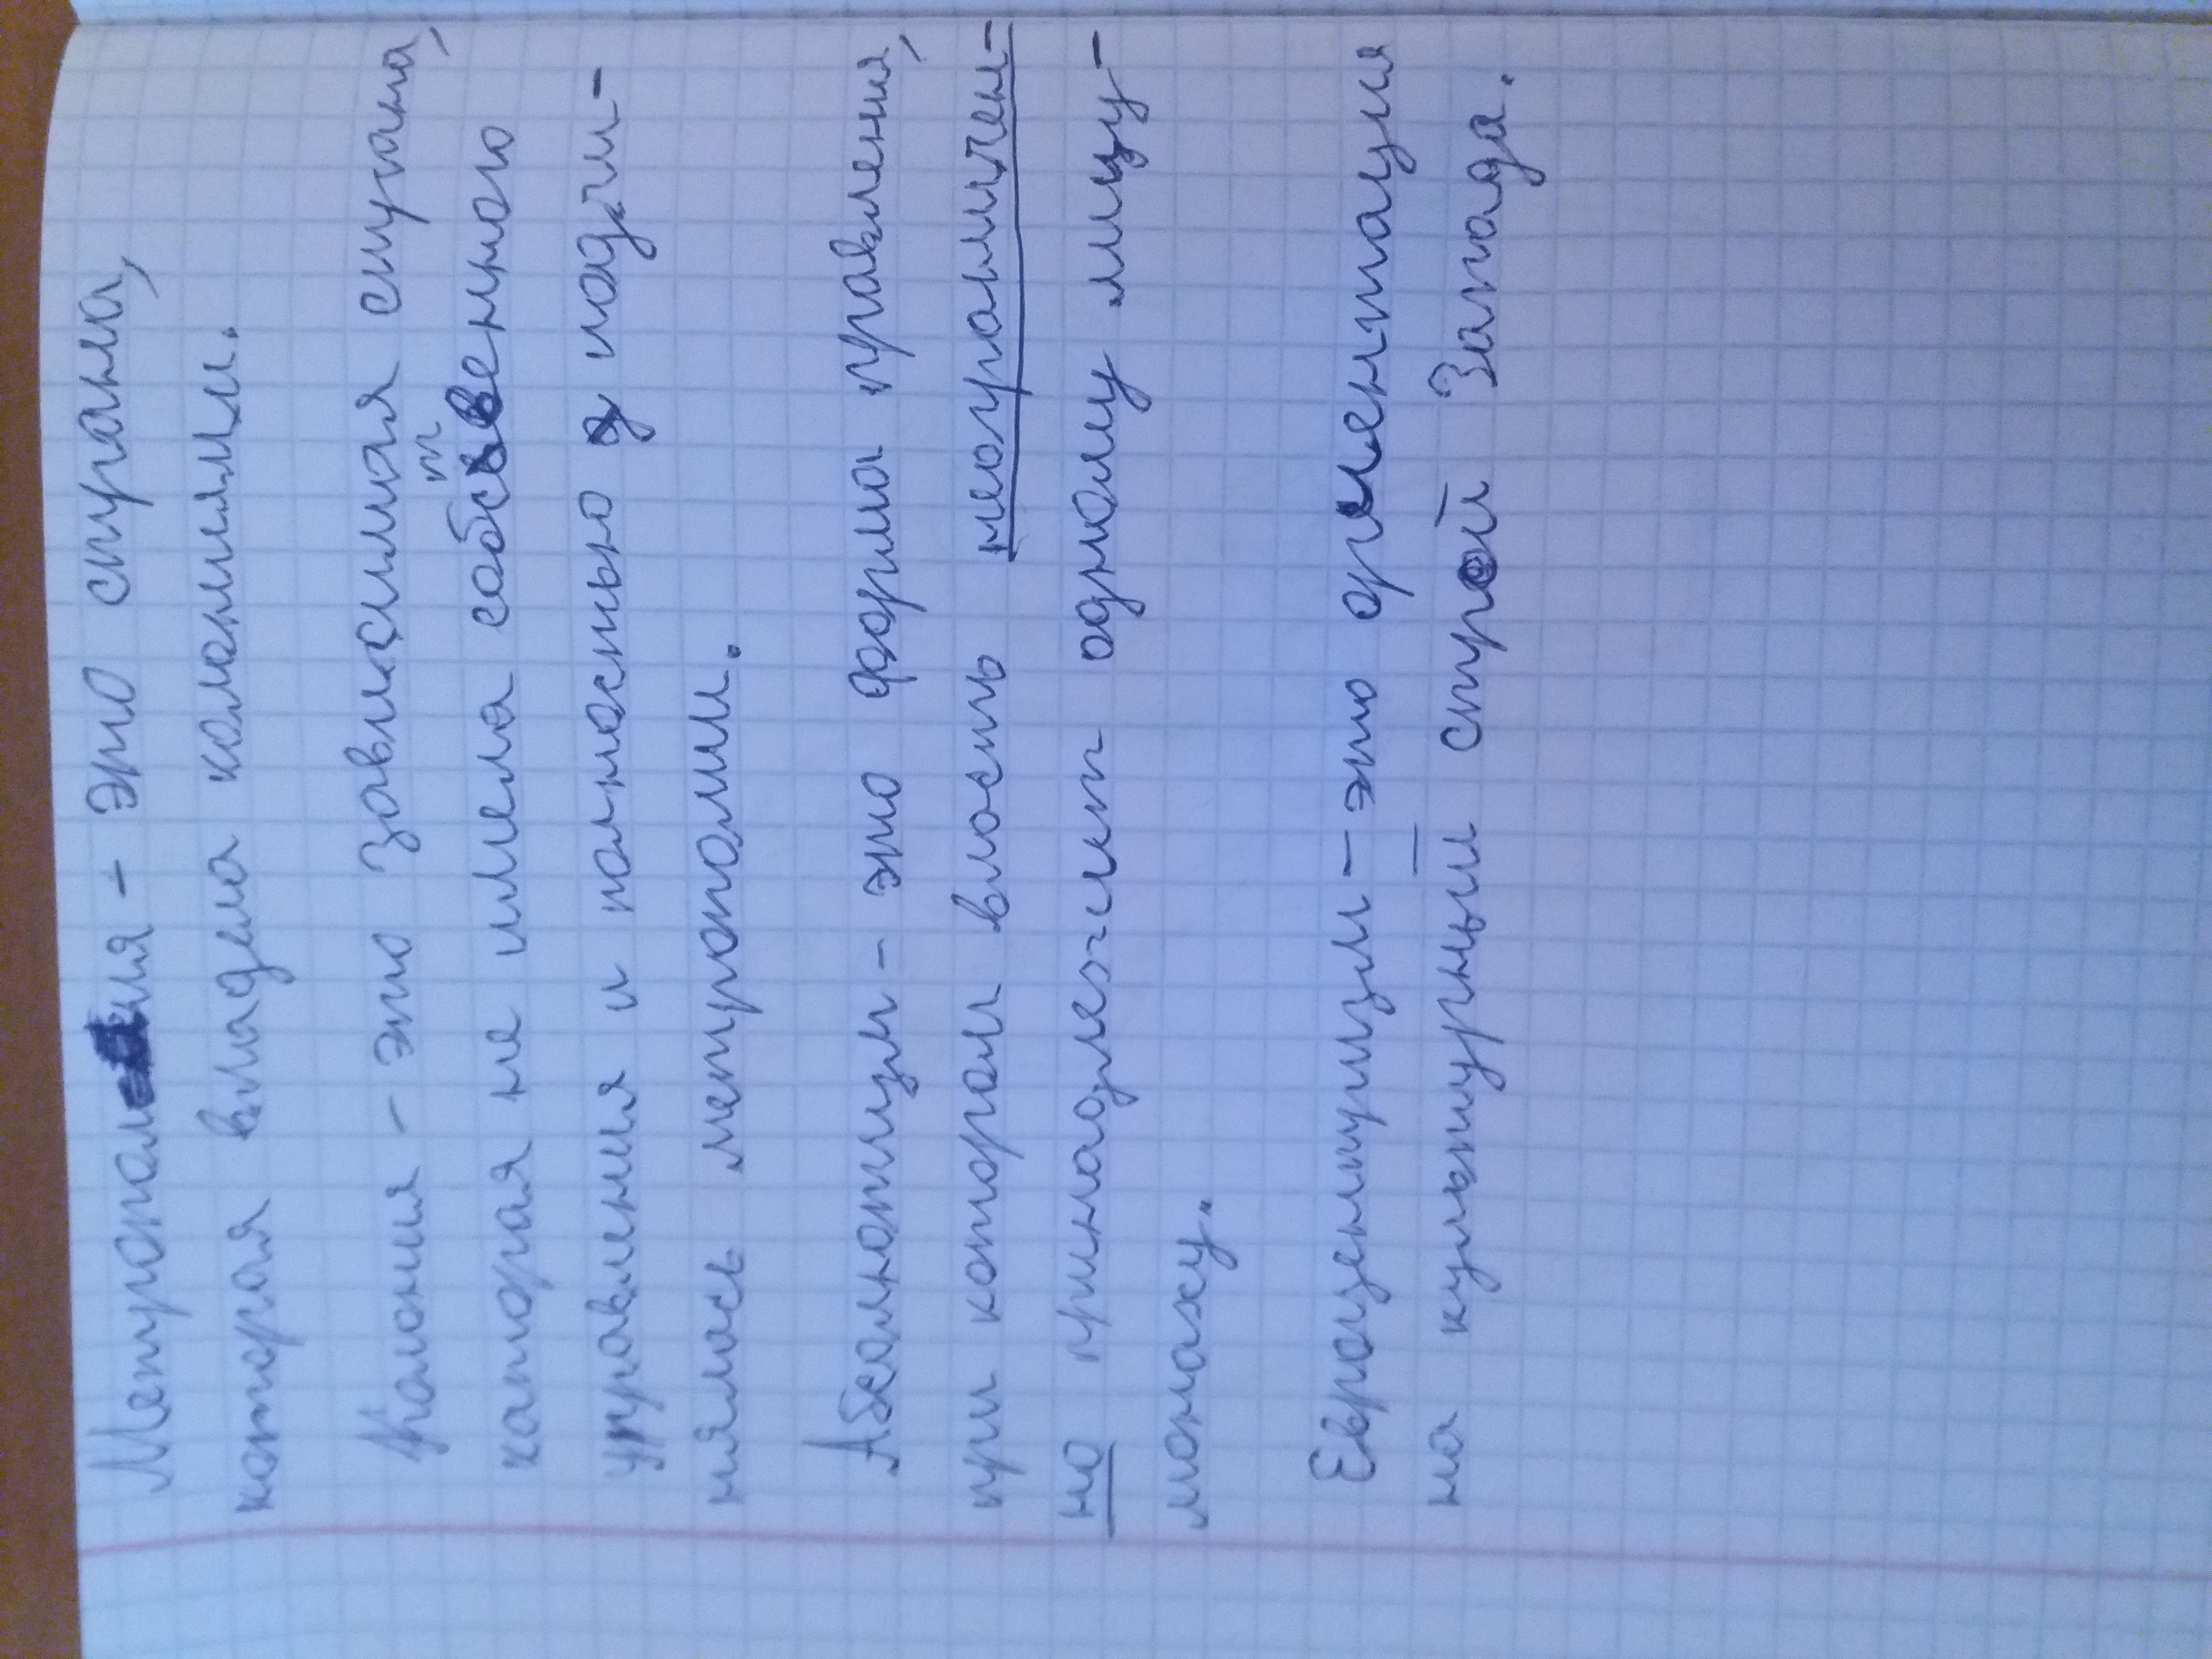 Метрополия - это страна,
которая владела колониями.
Колония - это зависимая страна,
которая не имела собственного
управления и полностью подчи-
нялась метрополии.
Абсолютизм - это форма правления,
при котором власть неограничен-
но принадлежит одному лицу -
монаху.
Евроцентризм - это ориентация
на культурный строй Запада.